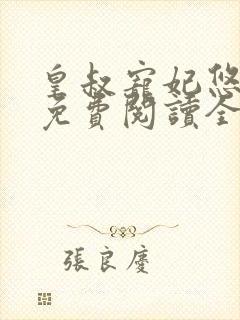 皇叔寵妃悠
免費閱讀全
張良慶